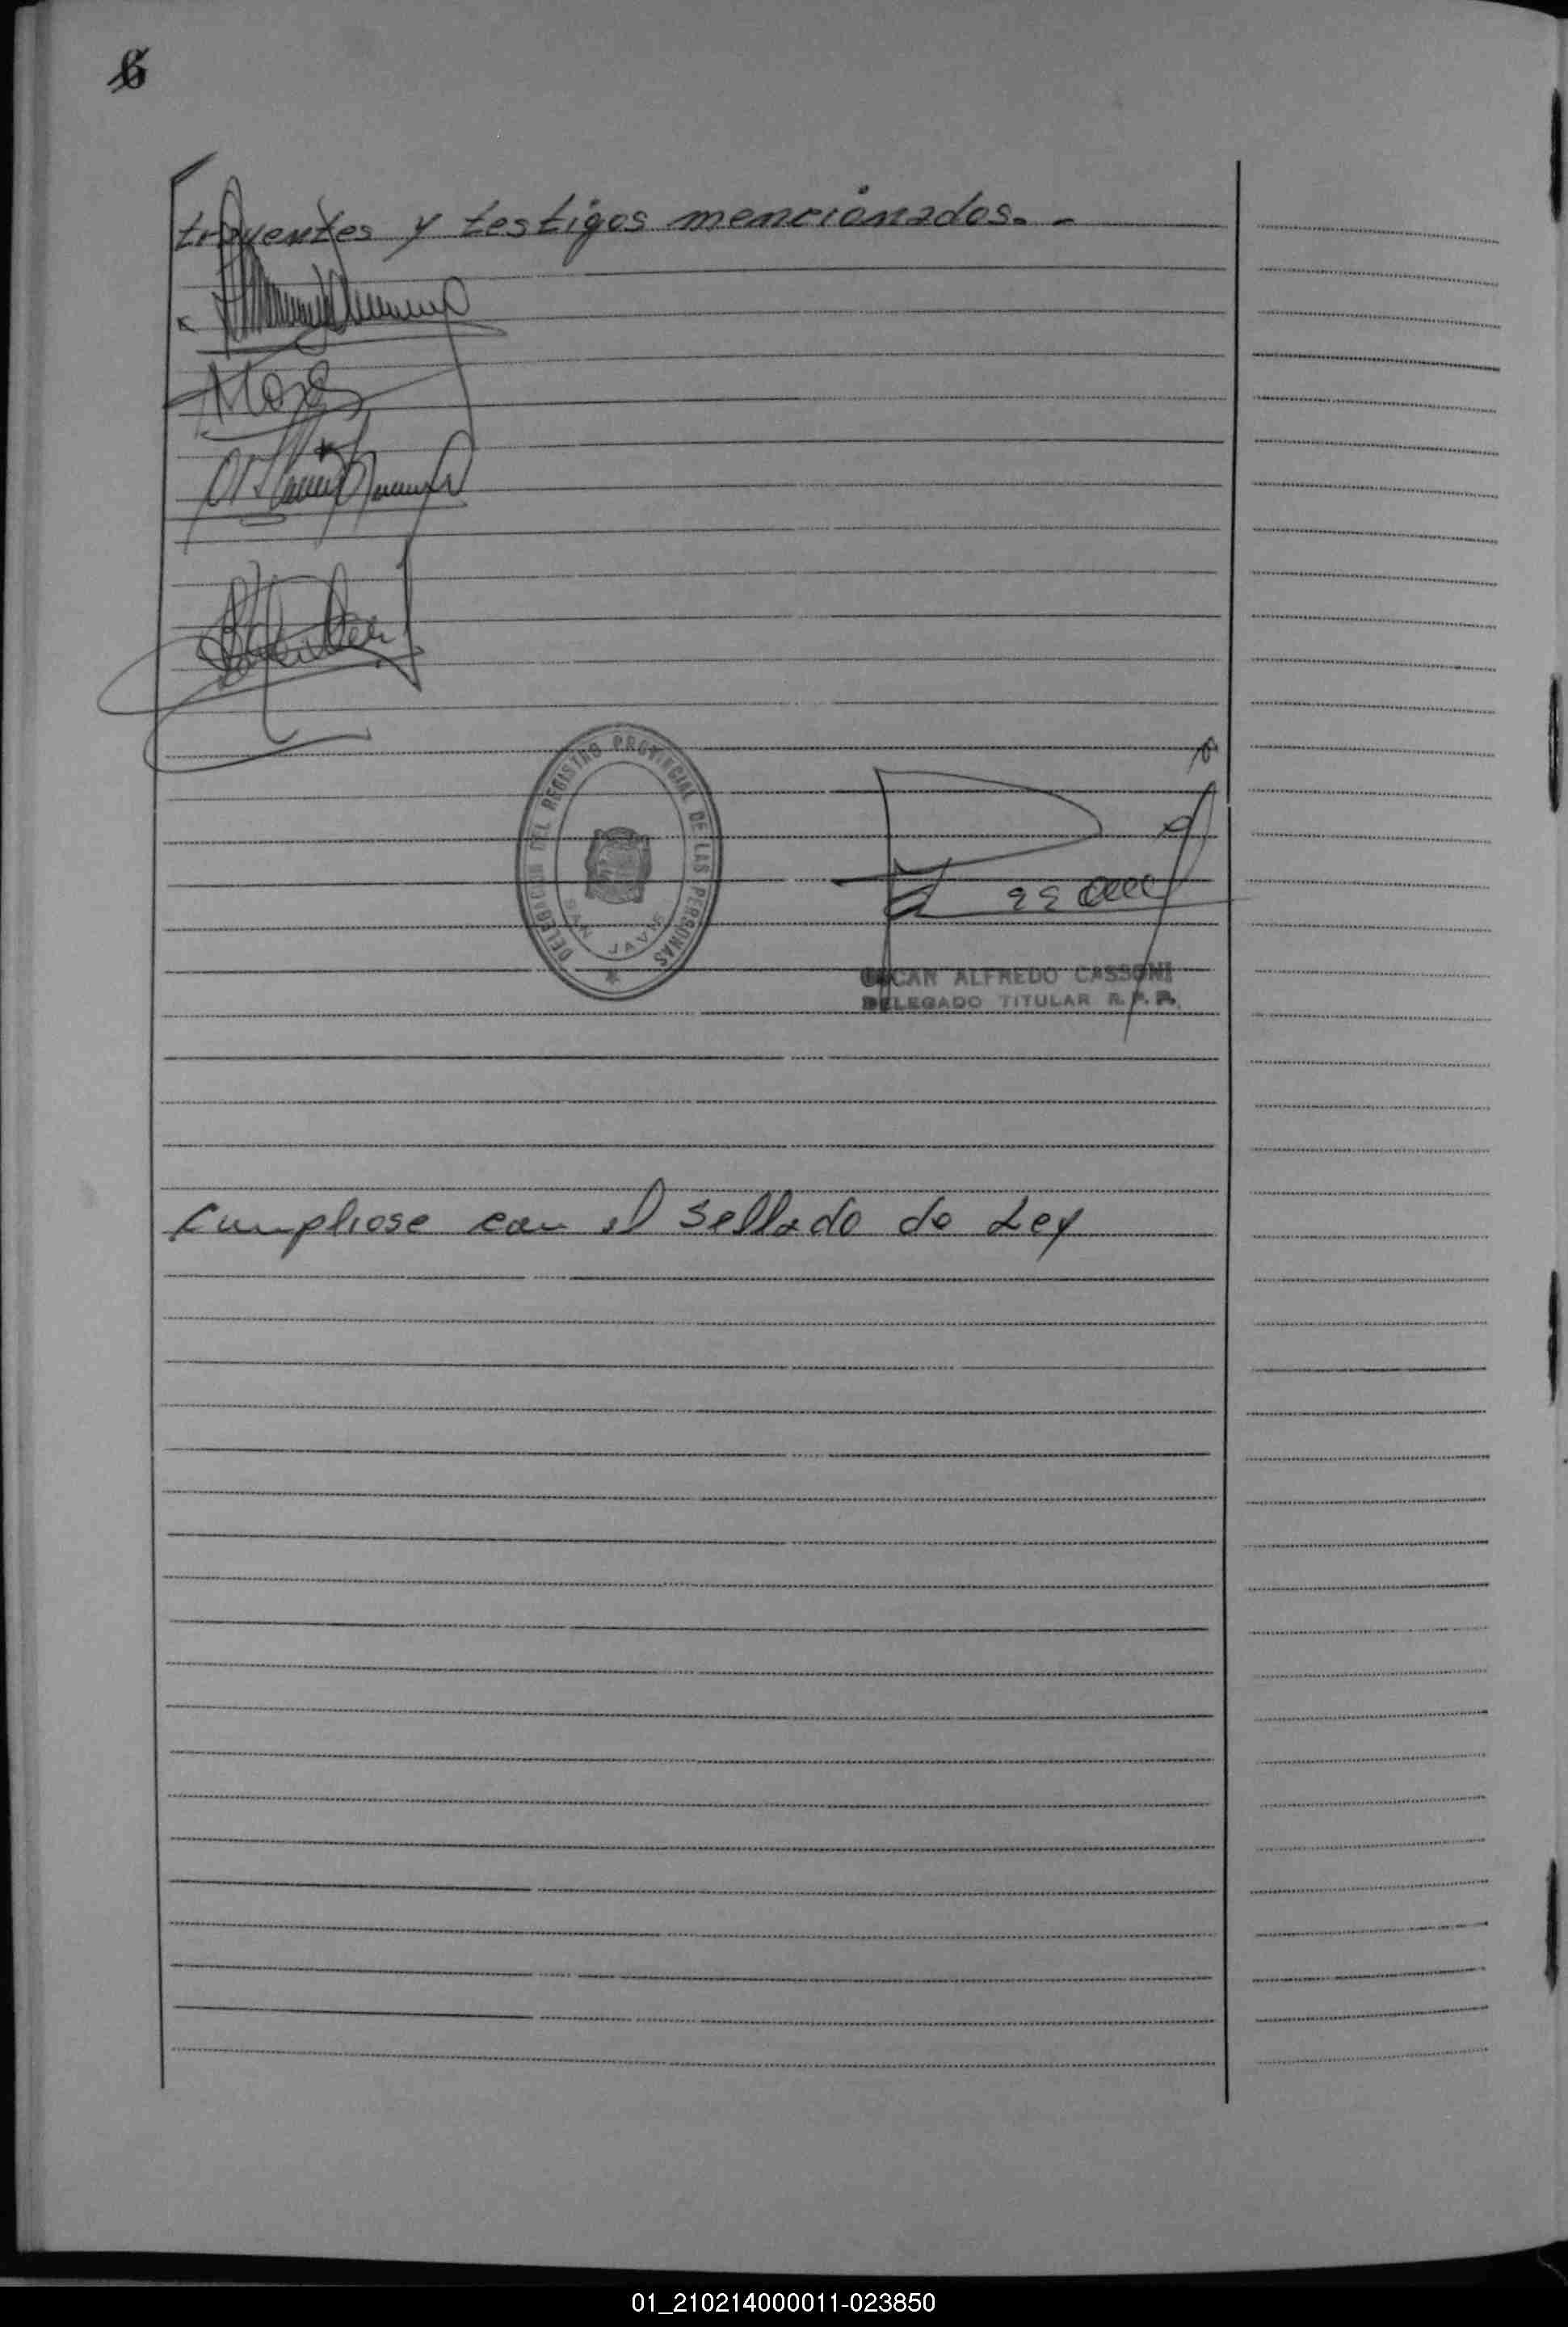 6
trayentes y testigos mencionados. -
DELEGACION DEL REGISTRO PROVINCIAL DE LAS PERSONAS
SAN JAVIER
OSCAR ALFREDO CASSONI
DELEGADO TITULAR R. P. P.
Cumpliose con el sellado de Ley
01_210214000011-023850